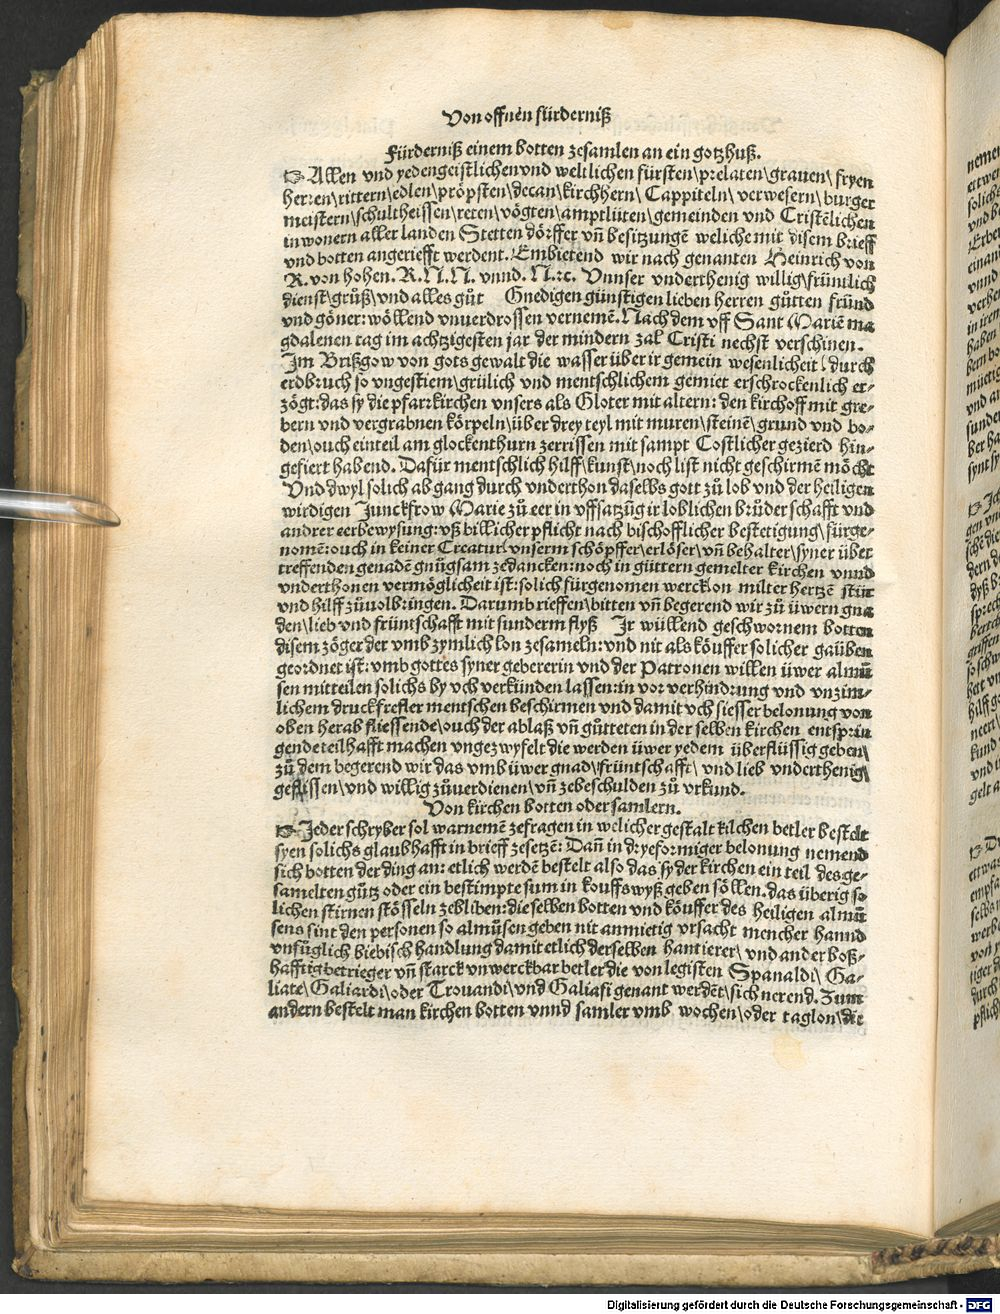 Von offnen fürderniß
Fürderniß einem botten zesamlen an ein gotzhuß.
☞ Allen vnd yeden geistlichen vnd weltlichen fürsten\prelaten\grauen\ fryen
herren\rittern\edlen\pröpsten\decan\kirchhern\ Cappiteln\ verwesern\ burger
meistern\schultheissen\reten\vögten\amptlüten\gemeinden vnd Cristēlichen
inwonern aller landen Stetten dörffer vñ besitzungē weliche mit disem brieff
vnd botten angeriefft werdent. Embietend wir nach genanten Heinrich von
R. von hohen. R. N. N. vnnd. N. ꝛc. Vnnser vnderthenig willig\früntlich
dienst\grůß\vnd alles gůt Gnedigen günstigen lieben herren gůtten fründ
vnd göner: wöllend vnuerdrossen vernemē. Nach dem vff Sant Mariē ma
gdalenen tag im achtzigesten jar der mindern zal Cristi nechst verschinen.
Im Brißgow von gots gewalt die wasser über ir gemein wesenlicheit \ durch
erdbruch so vngestiem\grülich vnd mentschlichem gemiet erschrockenlich er⸗
zögt: das sy die pfarrkirchen vnsers als Gloter mit altern: den kirchoff mit gre⸗
bern vnd vergrabnen körpeln\über drey teyl mit muren\steinē\grund vnd bo⸗
den\ouch ein teil am glockenthurn zerrissen mit sampt Costlicher gezierd hin⸗
gefiert habend. Dafür mentschlich hilff\kunst\noch list nicht geschirmē möcht
Vnd dwyl solich ab gang durch vnderthon daselbs gott zů lob vnd der heiligen
wirdigen Junckfrow Marie zů eer in vffsatzūg ir loblichen brůder schafft vnd
andrer eerbewysung: vß billicher pflicht nach bischofflicher bestetigung\ fürge⸗
nomē: ouch in keiner Creatur\ vnserm schöpffer\erlöser\ vñ behalter\syner über
treffenden genadē gnůgsam zedancken: noch in güttern gemelter kirchen vnnd
vnderthonen vermöglicheit ist: solich fürgenomen werck\on milter hertzē stür
vnd hilff zůuolbringen. Darumb rieffen\bitten vñ begerend wir zů üwern gna
den\lieb vnd früntschafft mit sunderm flyß Ir wüllend geschwornem botten
disem zöger der vmb zymlich lon zesameln: vnd nit als köuffer solicher gaüben
geordnet ist: vmb gottes syner gebererin vnd der Patronen willen üwer almů
sen mitteilen solichs by vch verkünden lassen: in vor verhindrung vnd vnzim⸗
lichem druck frefler mentschen beschirmen vnd damit vch siesser belonung von
oben herab fliessende\ouch der ablaß vñ gůtteten in der selben kirchen entsprin
gende teilhafft machen vngezwyfelt die werden üwer yedem überflüssig geben\
zů dem begerend wir das vmb üwer gnad\früntschafft\ vnd lieb vnderthenig\
geflissen\vnd willig zůuerdienen\vñ zebeschulden zů vrkund.
Von kirchen botten oder samlern.
☞ Jeder schryber sol warnemē ze fragen in welicher gestalt kilchen betler bestelt
syen solichs glaubhafft in brieff zesetzē: Dañ in dryeformiger belonung nemend
sich botten der ding an: etlich werdē bestelt also das sy der kirchen ein teil des ge⸗
samelten gůtz oder ein bestimpte sum in kouffs wyß geben söllen. das überig so
lichen stirnen stösseln zebliben: die selben botten vnd köuffer des heiligen almů
sens sint den personen so almůsen geben nit anmietig vrsacht mencher hannd
vnfůglich biebisch handlung damit etlich derselben hantierer\ vnd ander boß⸗
hafftig betrieger vñ starck vnwerckbar betler die von legisten Spanaldi\ Ga⸗
liate\Galiardi\oder Trouandi\vnd Galiafi genant werdēt\sich nerend. Zum
andern bestelt man kirchen botten vnnd samler vmb wochen\oder taglon\die
Digitalisierung gefördert durch die Deutsche Forschungsgemeinschaft - DFG